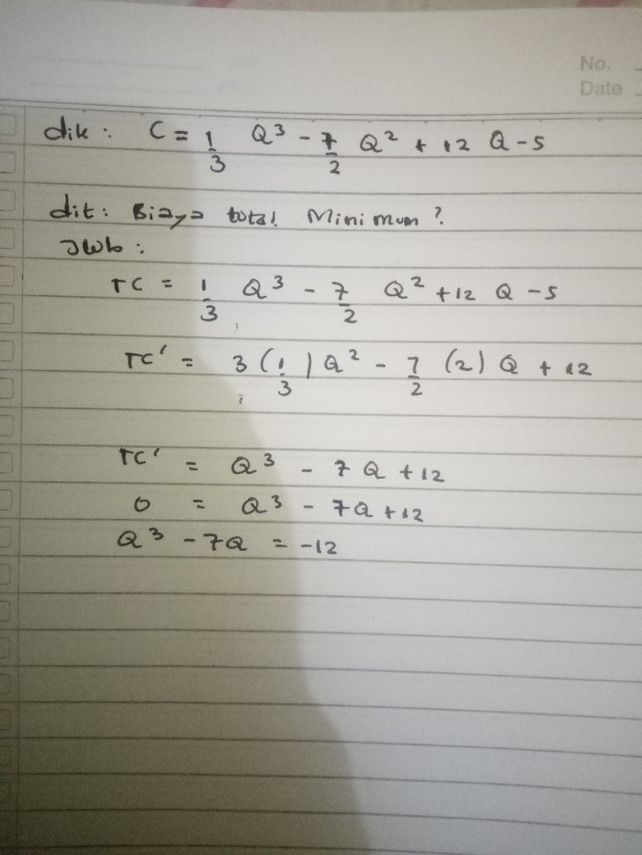 No.
Date
dik : C = 1/3 Q³ - 7/2 Q² + 12 Q - 5
dit : Biaya total Minimum ?
Jwb :
TC = 1/3 Q³ - 7/2 Q² + 12 Q - 5
TC' = 3 (1/3) Q² - 7/2 (2) Q + 12
TC' = Q³ - 7Q + 12
0 = Q³ - 7Q + 12
Q³ - 7Q = -12